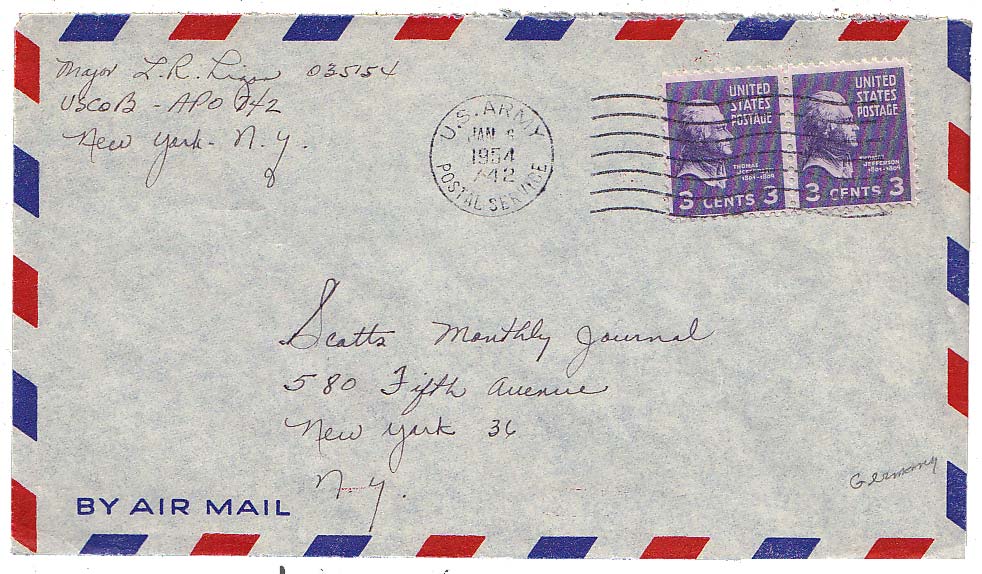 Major L. R. Ligon 035154
USCOB - APO 742
New York - N. Y.
U.S. ARMY
JAN
1954
742
POSTAL SERVICE
UNITED
STATES
POSTAGE
THOMAS
JEFFERSON
1801-1809
3 CENTS 3
UNITED
STATES
POSTAGE
THOMAS
JEFFERSON
1801-1809
3 CENTS 3
Scotts Monthly Journal
580 Fifth Avenue
New York 36
N-Y.
Germany
BY AIR MAIL